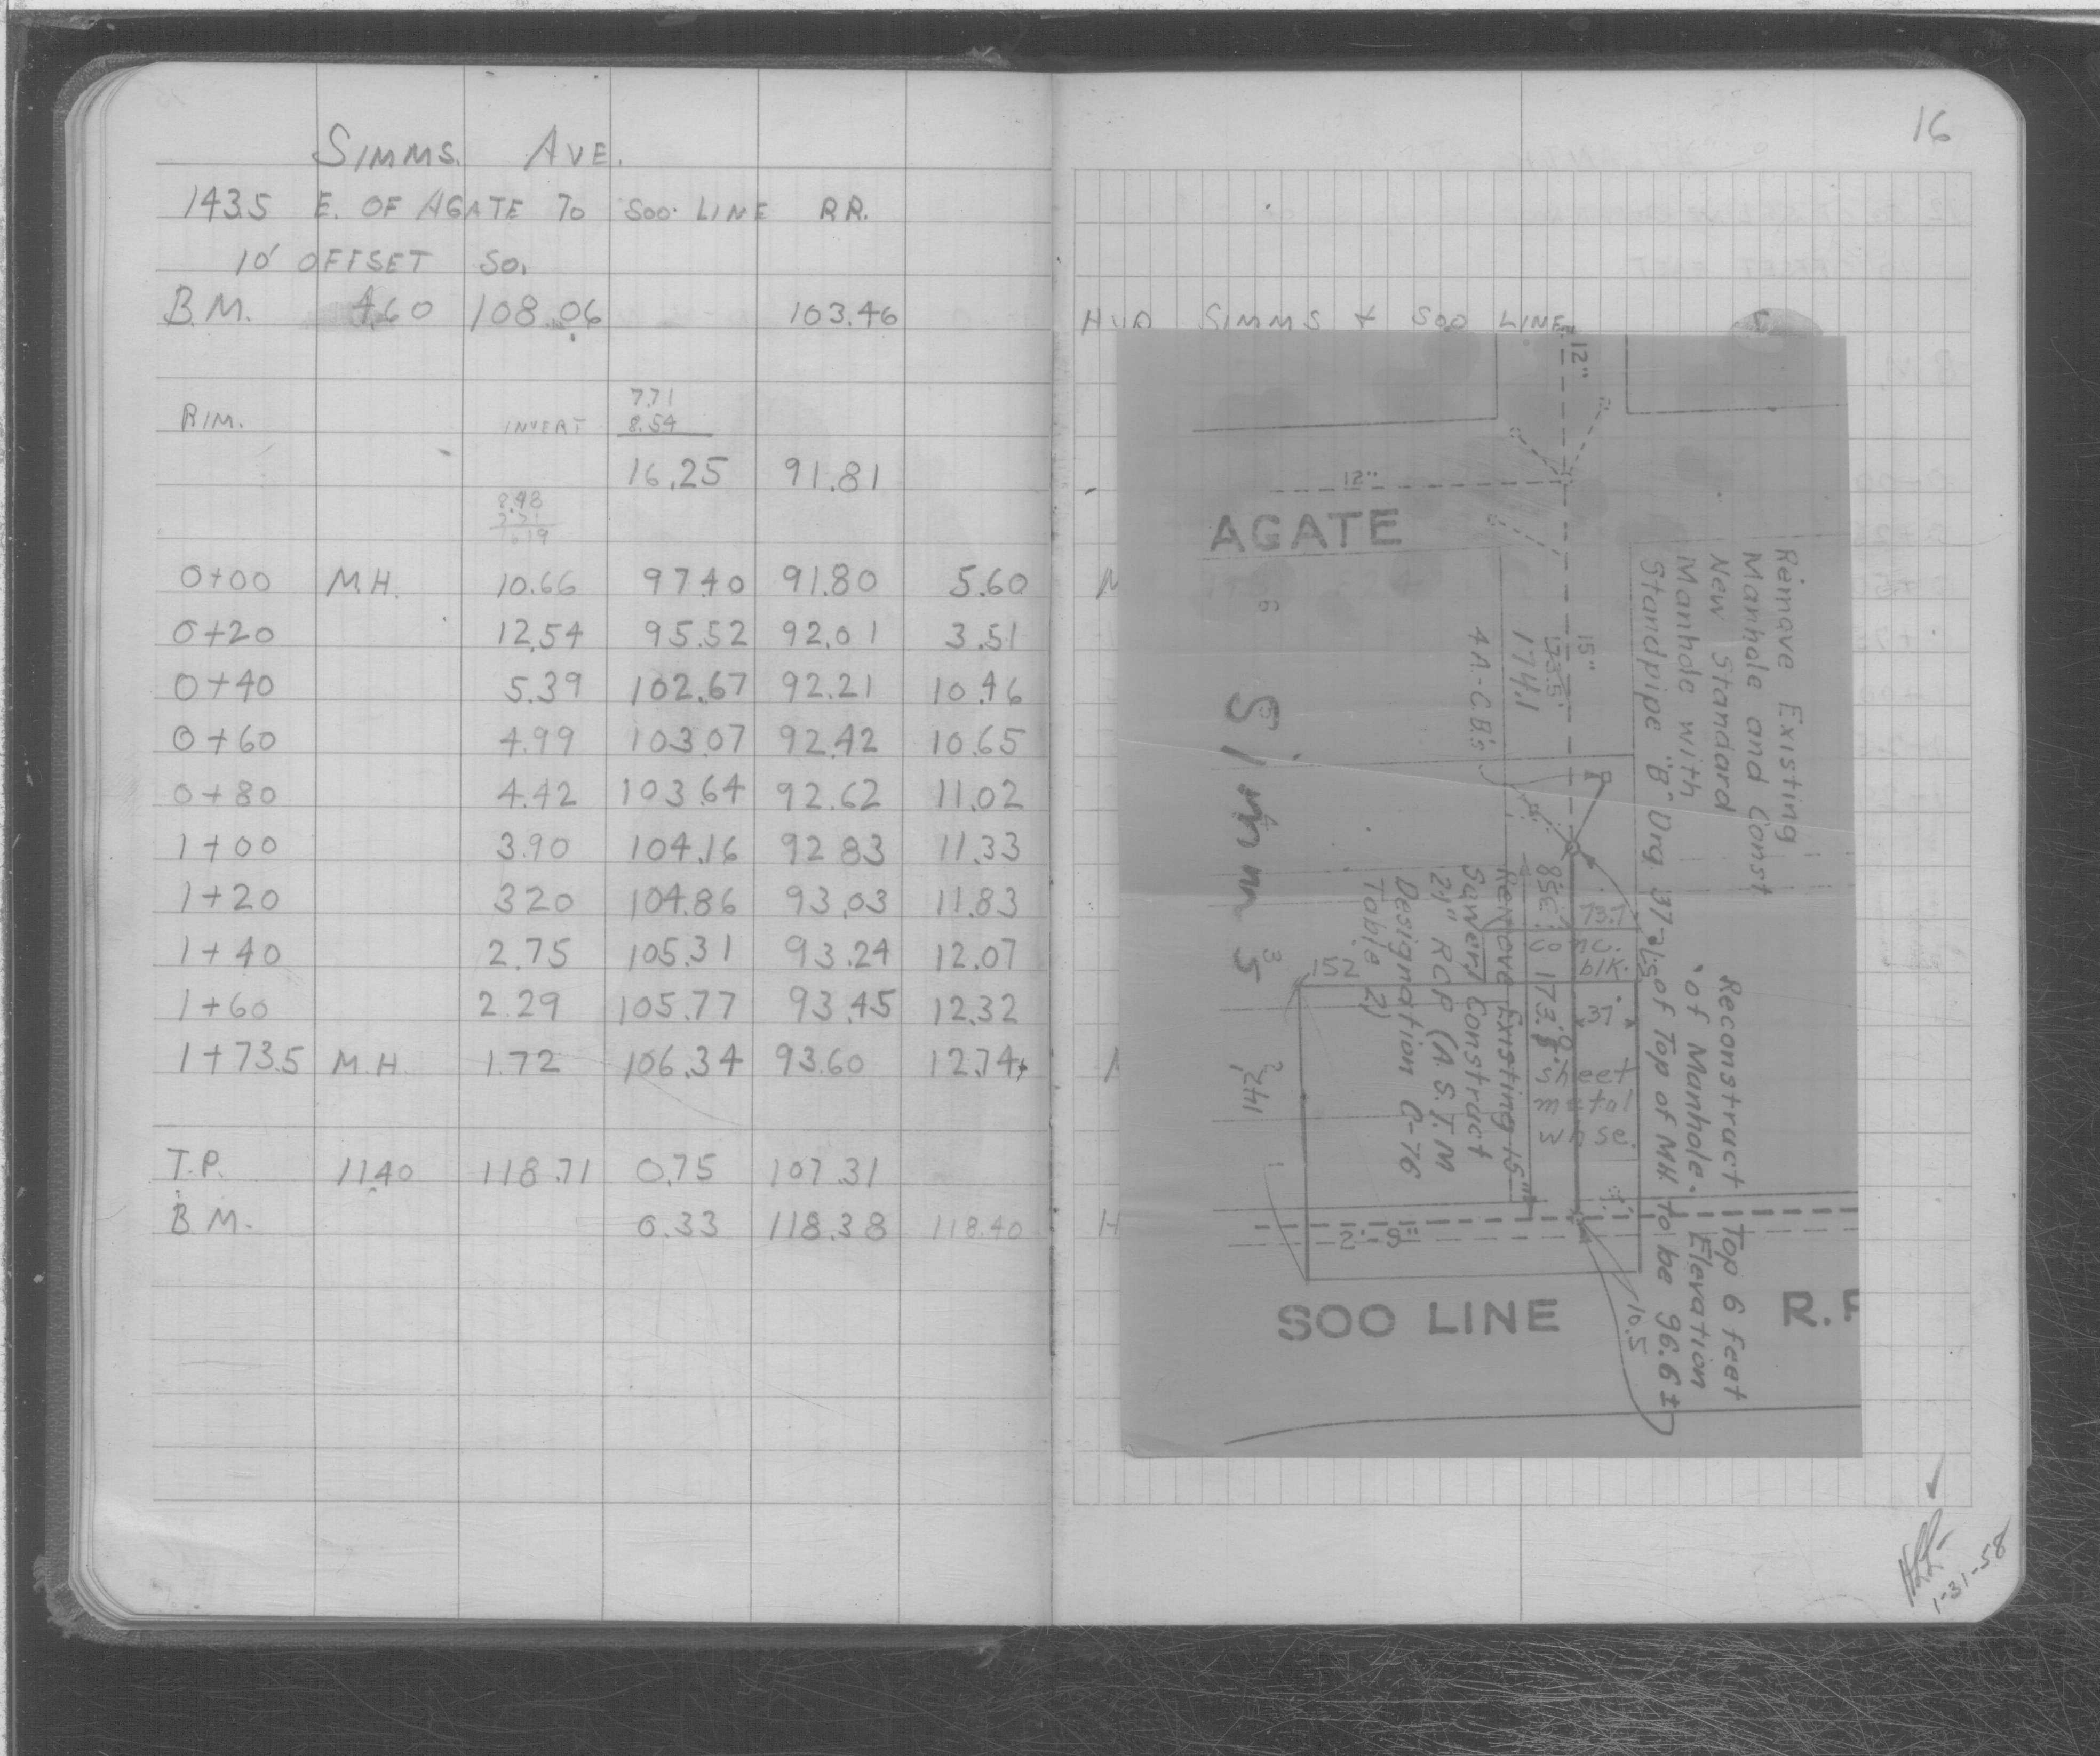 SIMMS. AVE.
143.5 E. OF AGATE TO SOO LINE RR.
10' OFFSET SO.
B.M. 4.60 108.06 103.46
RIM. INVERT 7.71
8.54
16.25 91.81
0+00 M.H. 10.66 97.40 91.80 5.60
0+20 12.54 95.52 92.01 3.51
0+40 5.39 102.67 92.21 10.46
0+60 4.99 103.07 92.42 10.65
0+80 4.42 103.64 92.62 11.02
1+00 3.90 104.16 92.83 11.33
1+20 3.20 104.86 93.03 11.83
1+40 2.75 105.31 93.24 12.07
1+60 2.29 105.77 93.45 12.32
1+73.5 M.H. 1.72 106.34 93.60 12.74
T.P. 11.40 118.71 0.75 107.31
B.M. 0.33 118.38 118.40
16
HYD SIMMS + SOO LINE
12"
12"
AGATE
Simms
15"
173.5
174.1
4 A-C.B.'s
Remove Existing
Manhole and Const
New Standard
Manhole with
Standpipe "B" Drg.
73.7
conc.
blk.
37'
173.5
sheet
metal
whse.
152
142
Remove Existing 15"
Sewer Construct
21" RCP (A.S.T.M
Designation C-76
Table 2)
Reconstruct Top 6 feet
of Manhole. Elevation
of Top of MH to be 96.6±
10.5
SOO LINE R.R
1-31-58